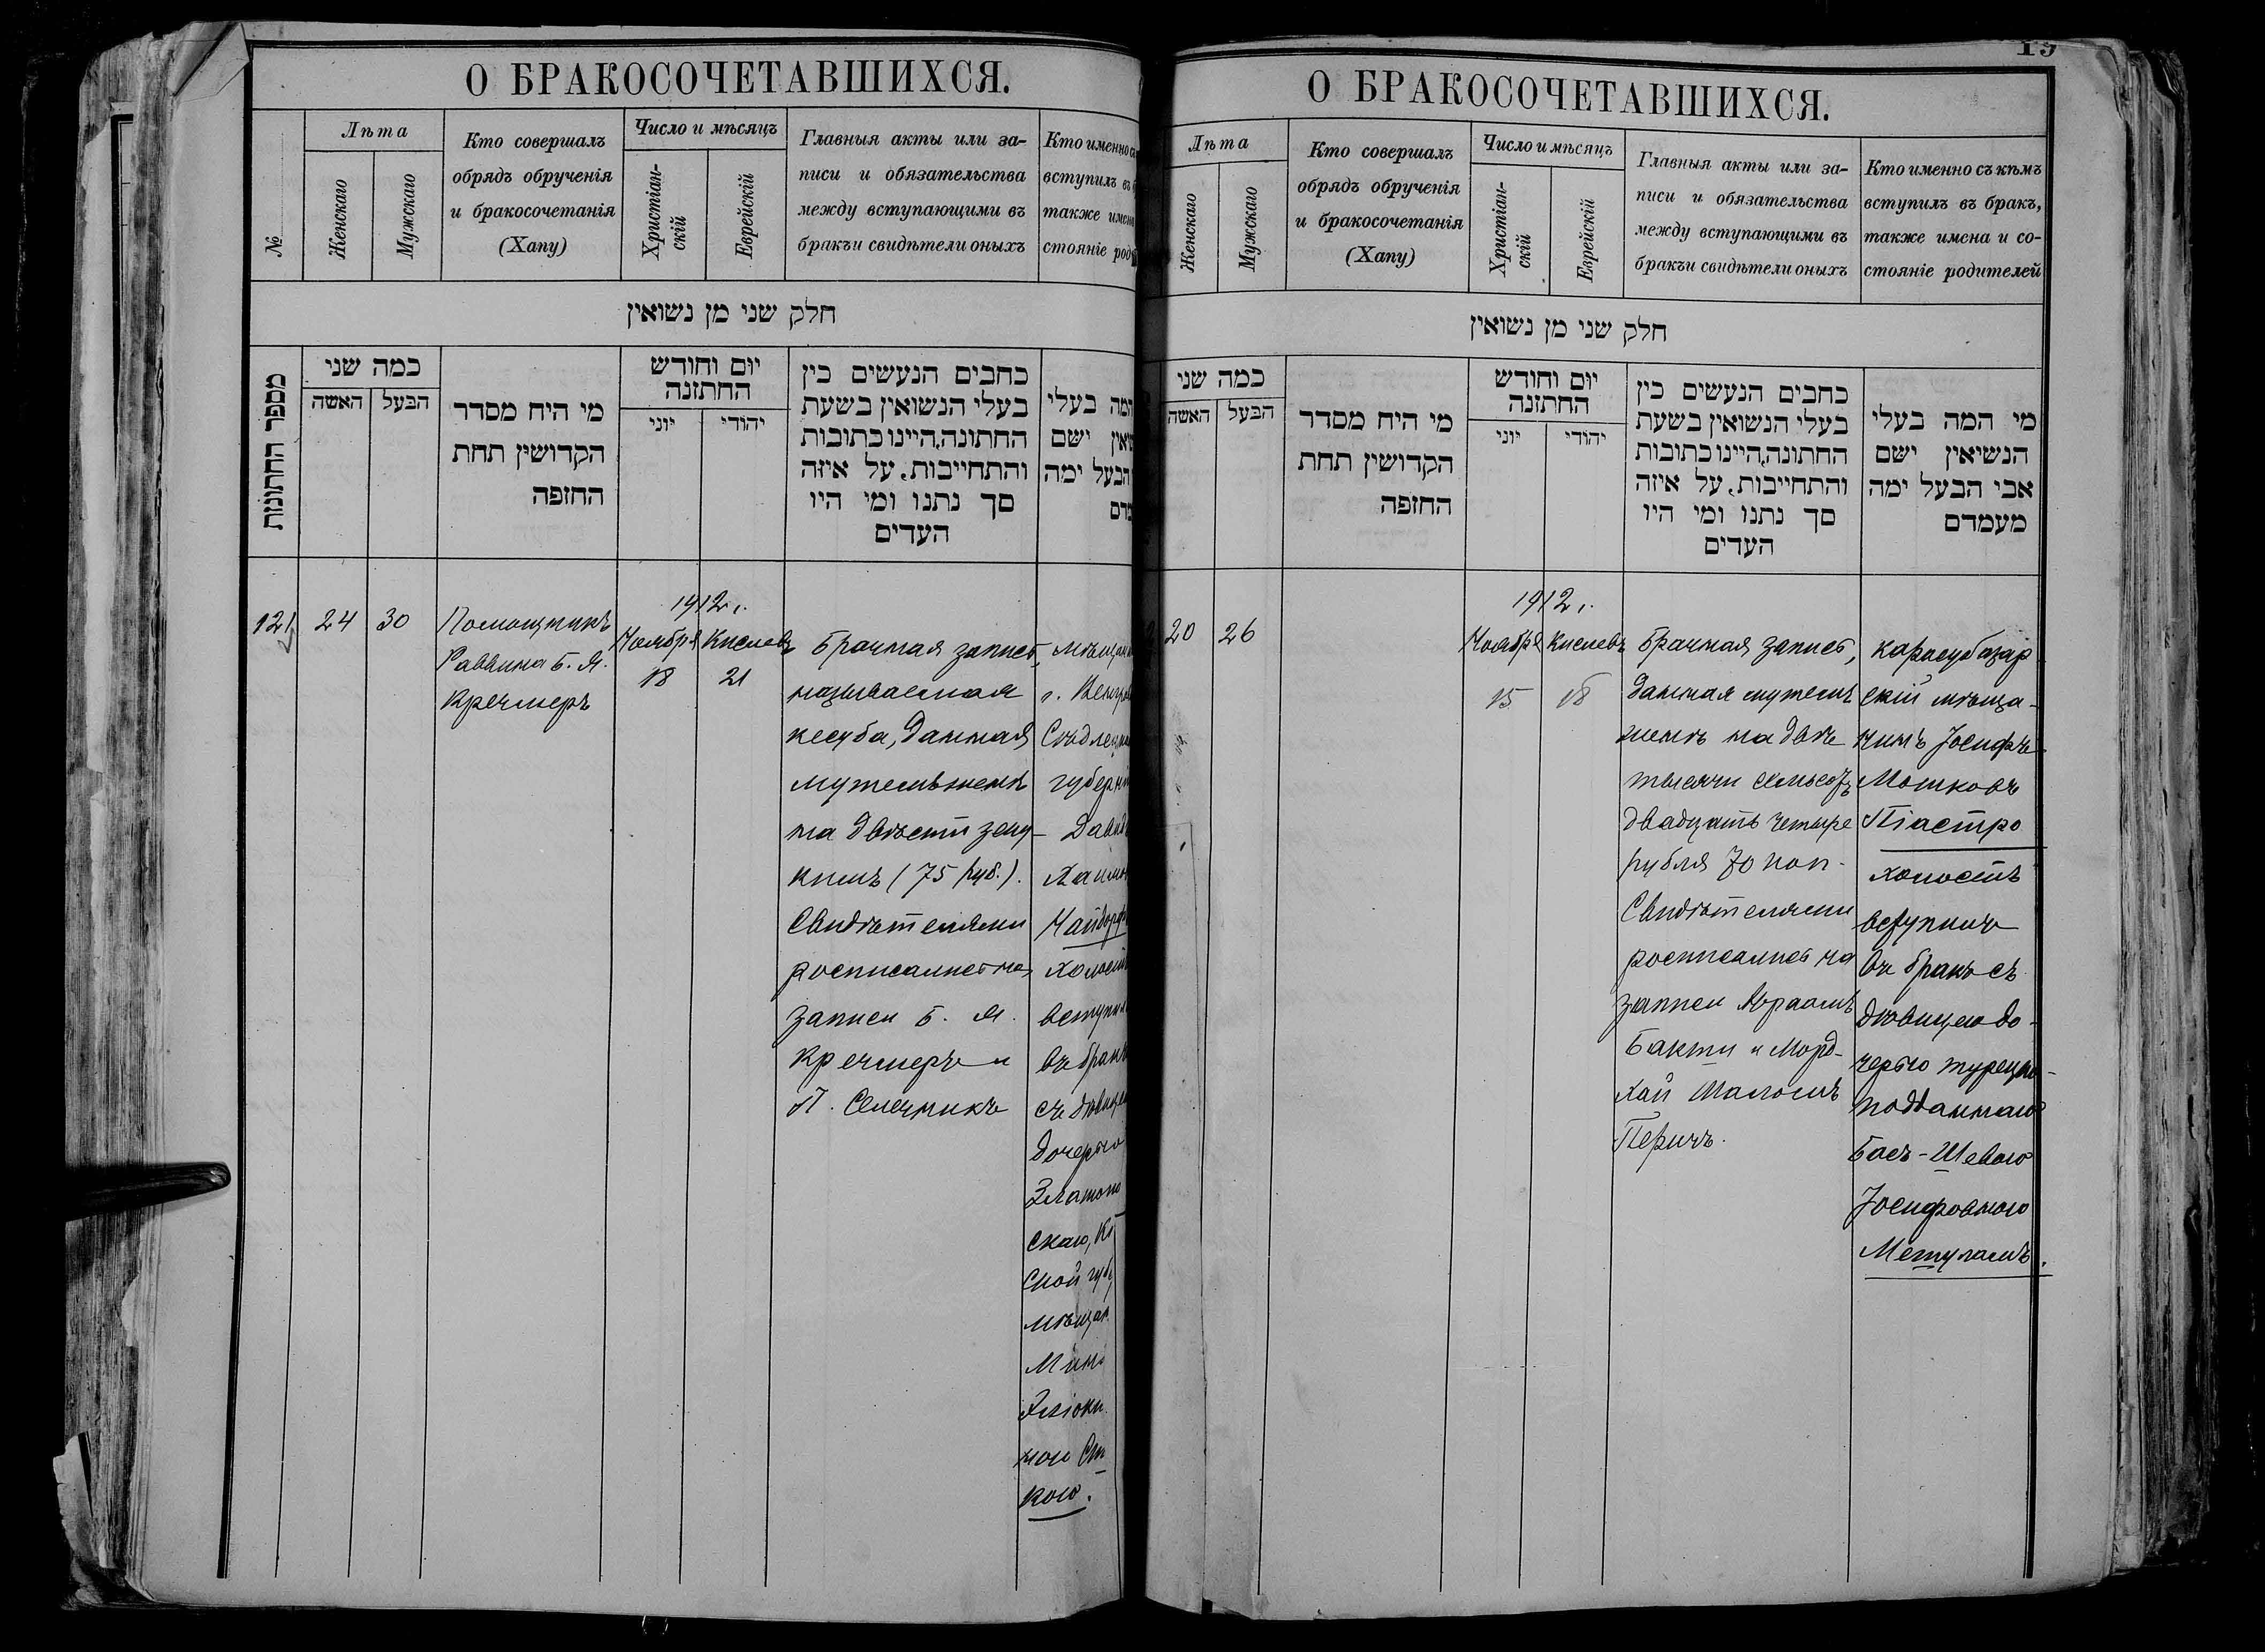 О БРАКОСОЧЕТАВШИХСЯ.
№
Лѣта
Женскаго
Мужскаго
Кто совершалъ
обрядъ обрученія
и бракосочетанія
(Хапу)
Число и мѣсяцъ
Христіан-
скій
Еврейскій
Главныя акты или за-
писи и обязательства
между вступающими въ
бракъи свидѣтели оныхъ
Кто именно
вступилъ въ
также имена
стояніе
חלק שני מן נשואין
מספר החתונות
כמה שני
האשה
הבעל
מי היח מסדר
הקדושין תחת
החזפה
יום וחודש
החתזנה
יוני
יהודי
כחבים הנעשים כין
בעלי הנשואין בשעת
החתונה,היינו כתובות
והתחייבות, על איזה
סך נתנו ומי היו
העדים
המה בעלי
ישם
הבעל ימה
121
24
30
Помощникъ
Раввина Б. Я.
Кречмеръ
1912 г.
Ноября
18
Кислевъ
21
Брачная запись,
называемая
кесуба, данная
мужемъ женѣ
на двѣсти зеху-
кимъ (75 руб.).
Свидѣтелями
росписались на
записи Б. Я.
Кречмеръ и
П. Селечникъ
г.
губерн
Давид
Хаимо
вступил
въ бракъ
съ дѣвицею
дочерью
Златопо
скаго,
ской губ
мѣщан
кого.
19
О БРАКОСОЧЕТАВШИХСЯ.
Лѣта
Женскаго
Мужскаго
Кто совершалъ
обрядъ обрученія
и бракосочетанія
(Хапу)
Число и мѣсяцъ
Христіан-
скій
Еврейскій
Главныя акты или за-
писи и обязательства
между вступающими въ
бракъи свидѣтели оныхъ
Кто именно съ кѣмъ
вступилъ въ бракъ,
также имена и со-
стояніе родителей
חלק שני מן נשואין
כמה שני
האשה
הבעל
מי היח מסדר
הקדושין תחת
החזפה
יום וחודש
החתזנה
יוני
יהודי
כחבים הנעשים כין
בעלי הנשואין בשעת
החתונה,היינו כתובות
והתחייבות, על איזה
סך נתנו ומי היו
העדים
מי המה בעלי
הנשיאין ישם
אבי הבעל ימה
מעמדם
20
26
1912 г.
Ноября
15
Кислевъ
18
Брачная запись,
данная мужемъ
женѣ на двѣ
тысячи семьсотъ
двадцать четыре
рубля 70 коп.
Свидѣтелями
росписались на
записи Авраамъ
Бакши и Морд-
хай Шаломъ
Перичъ.
карасубазар-
скій мѣща-
нинъ Іосифъ
Мошковъ
Піастро
холостъ
вступилъ
въ бракъ съ
дѣвицею до-
черью турецко-
подданнаго
Басъ-Шевою
Іосифовною
Мешуламъ.